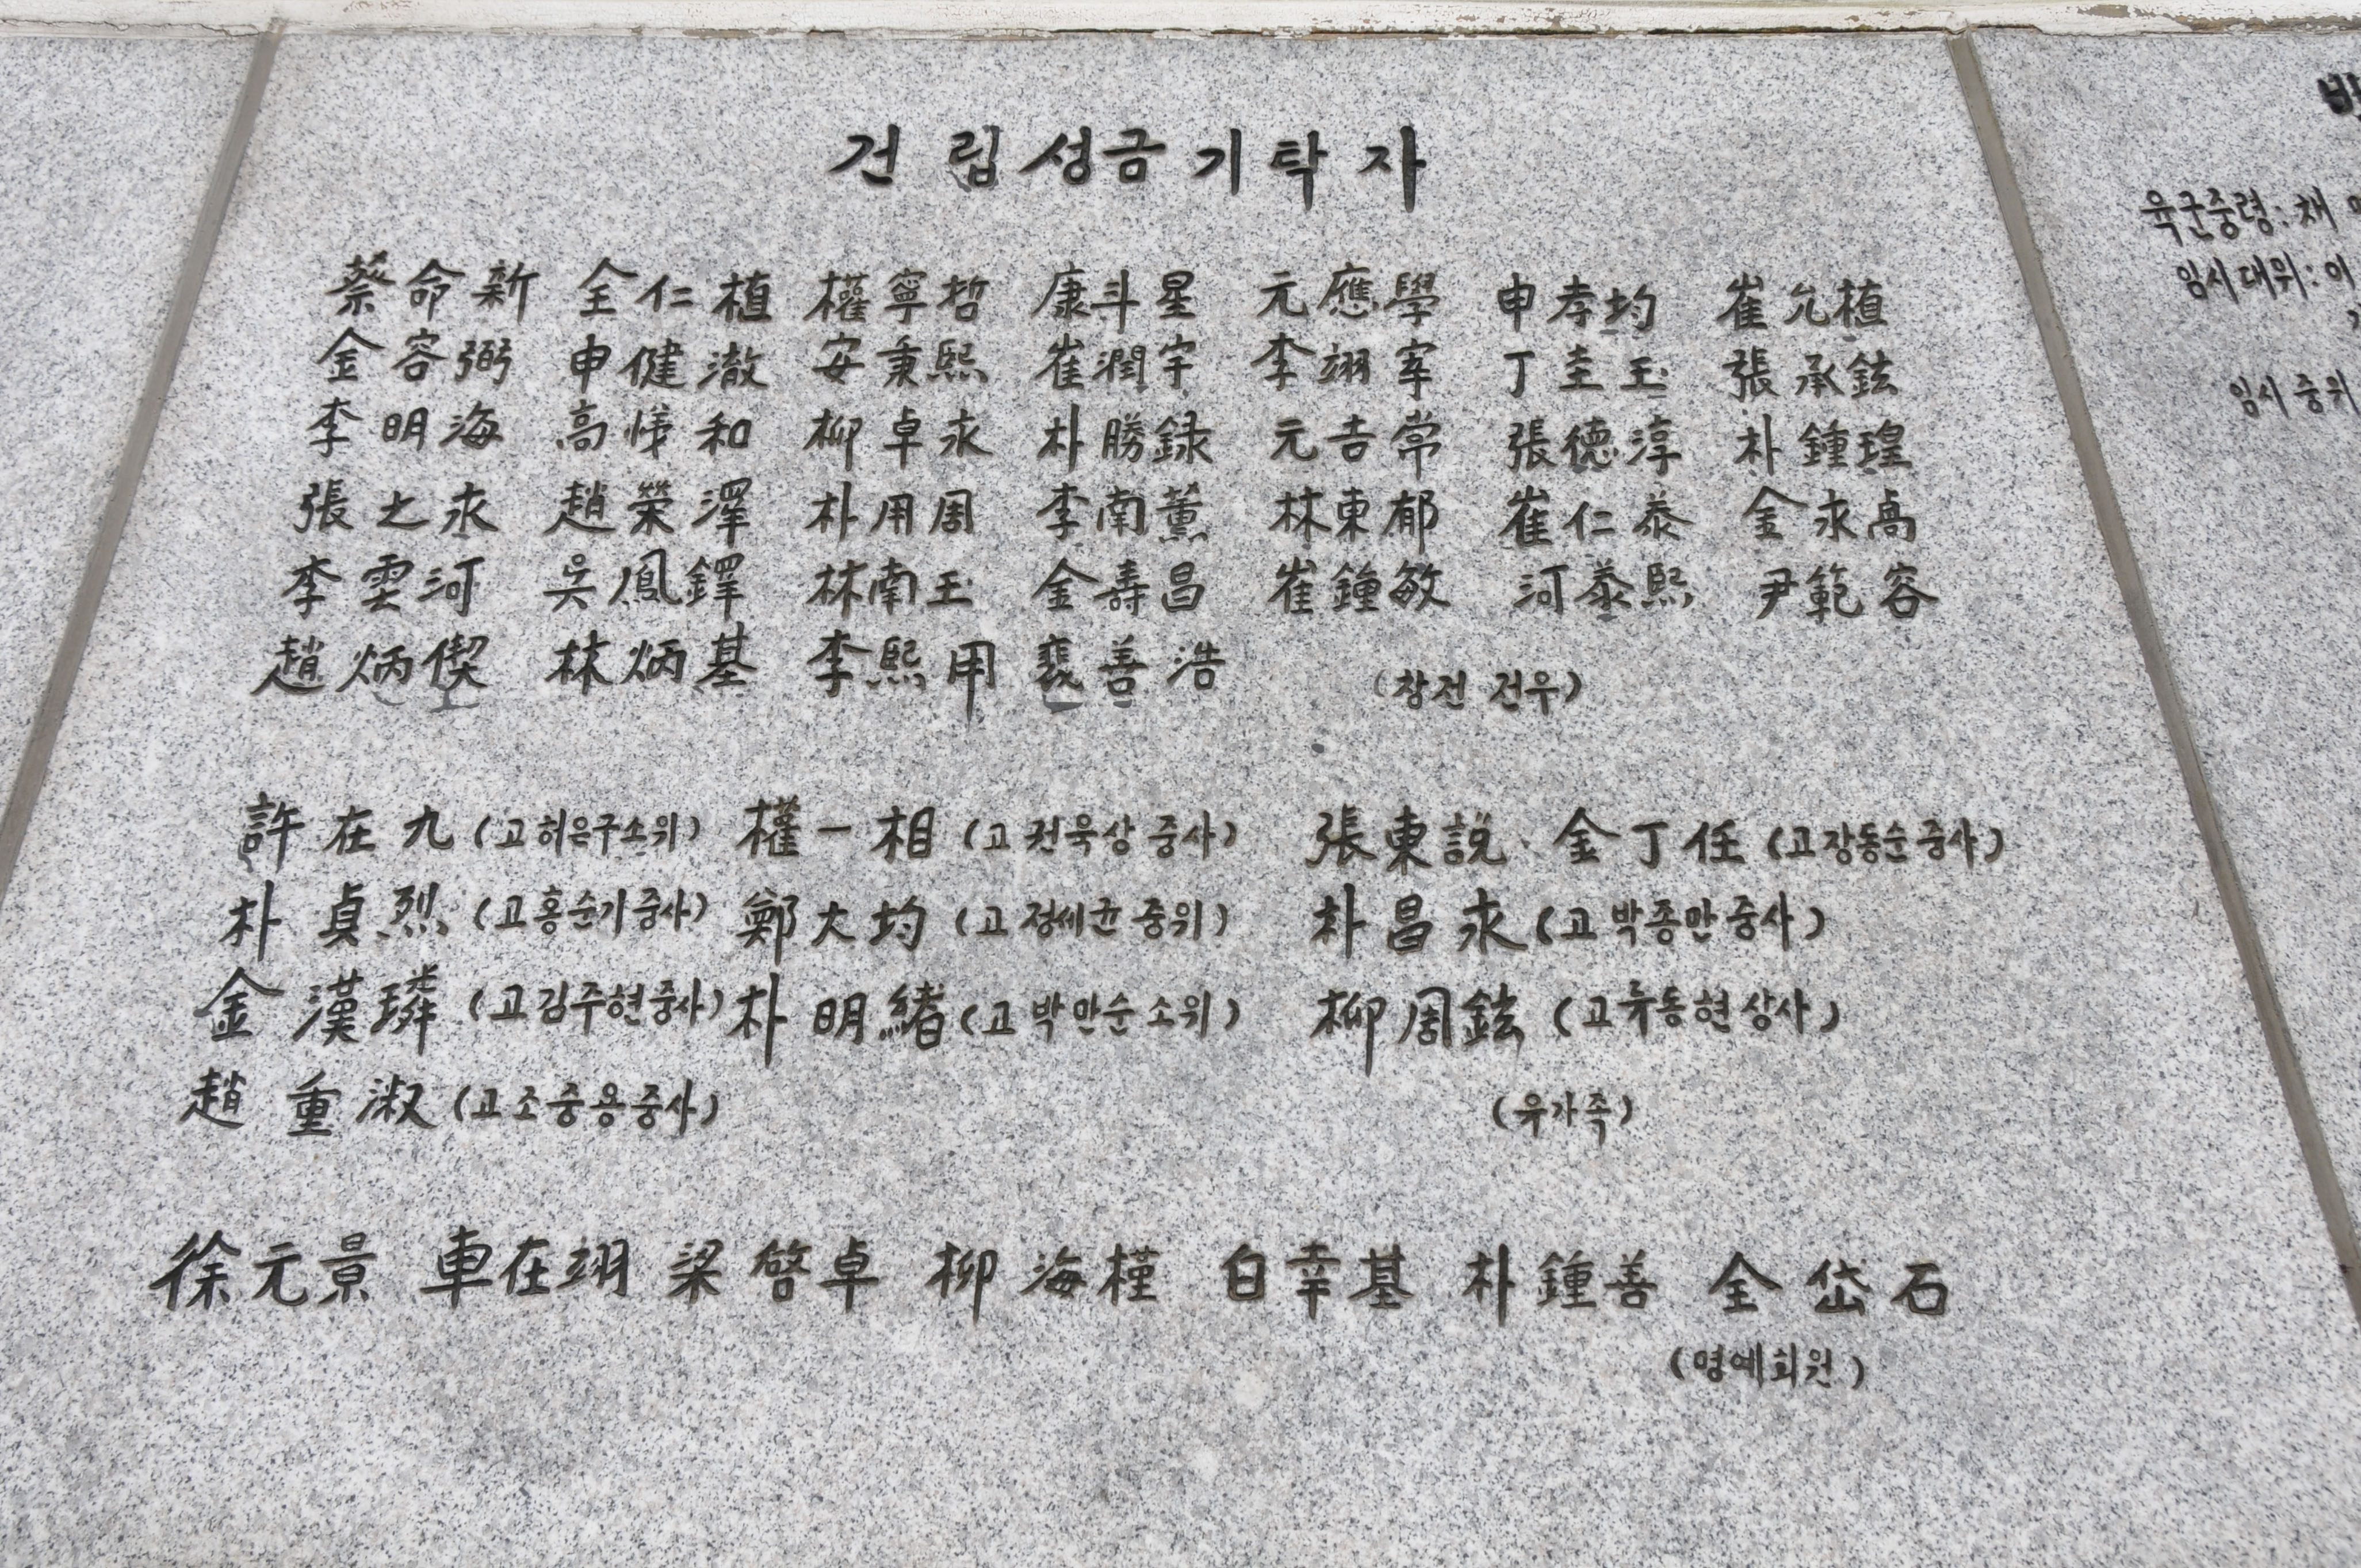 건립성금기탁자
蔡命新 全仁植 權寧哲 康斗星 元應學 申孝均 崔允植
金容弼 申健澈 安秉熙 崔潤宇 李翊宰 丁圭玉 張承鉉
李明海 高悌和 柳卓永 朴勝録 元吉常 張德淳 朴鍾瑝
張之永 趙榮澤 朴用周 李南薰 林東郁 崔仁泰 金永高
李雲河 吳鳳鐸 林南玉 金壽昌 崔鍾敏 河泰熙 尹範容
趙炳偰 林炳基 李熙用 裵善浩 (참전 전우)
許在九 (고허은구소위) 權一相 (고 권욱상 중사) 張東說·金丁任 (고장동순중사)
朴貞烈 (고홍순기중사) 鄭大均 (고 정세균 중위) 朴昌永 (고 박종만중사)
金漢璘 (고김주현중사) 朴明緖 (고 박만순 소위) 柳周鉉 (고류동현상사)
趙重淑 (고조중용중사) (유가족)
徐元景 車在翊 梁啓卓 柳海槿 白幸基 朴鍾善 全岱石
(명예회원)
육군중령: 채
임시대위: 이
임시중위